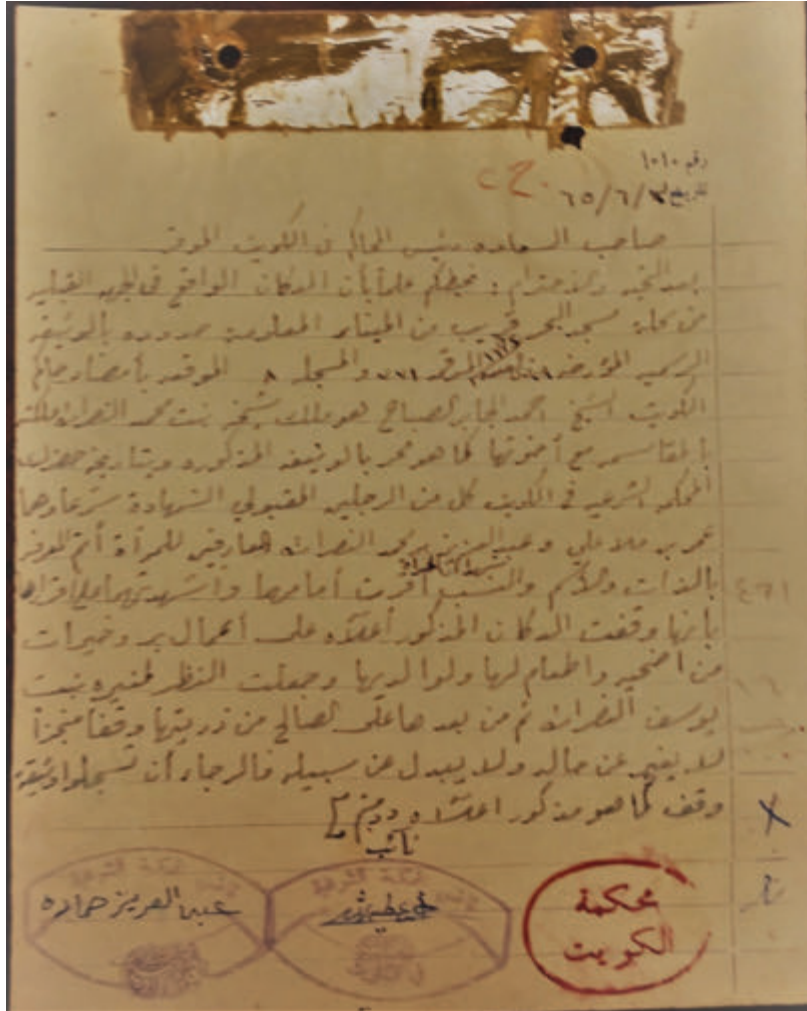 رقم ١٠١٠
تاريخ ٦٥/٦/
صاحب السعادة رئيس المحاكم في الكويت الموقر
بعد التحية والاحترام: نحيطكم علماً بأن الدكان الواقع في الجهة القبلية
من محلة مسجد البحر قريب من الميناء المعلومة حدوده بالوثيقة
الرسمية المؤرخة المرقمة ٧٧١ والمسجلة ٨ الموقعة بأمضاء حاكم
الكويت الشيخ احمد الجابر الصباح هو ملك شيخة بنت محمد النصرالله
بالمقاسمة مع أخوتها كما هو محرر بالوثيقة المذكورة وبتاريخه حضر لدى
المحكمة الشرعية في الكويت كل من الرجلين المقبولي الشهادة شرعا وهما
عمر بن ملا علي وعبد العزيز بن محمد النصرالله العارفين للمرأة أتم المعرفة
بالذات والاسم والنسب أقرت أمامهما واشهدتهما على اقرارها
بأنها وقفت الدكان المذكور أعلاه على أعمال بر وخيرات
من اضحية واطعام لها ولوالديها وجعلت النظر لمنيره بنت
يوسف النصرالله ثم من بعدها على الصالح من ذريتها وقفا منجزاً
لا يغير عن حاله ولا يبدل عن سبيله فالرجاء أن تسجلوا وثيقة
وقف كما هو مذكور اعلاه ودمتم
نائب
محكمة
الكويت
عبد العزيز حماده